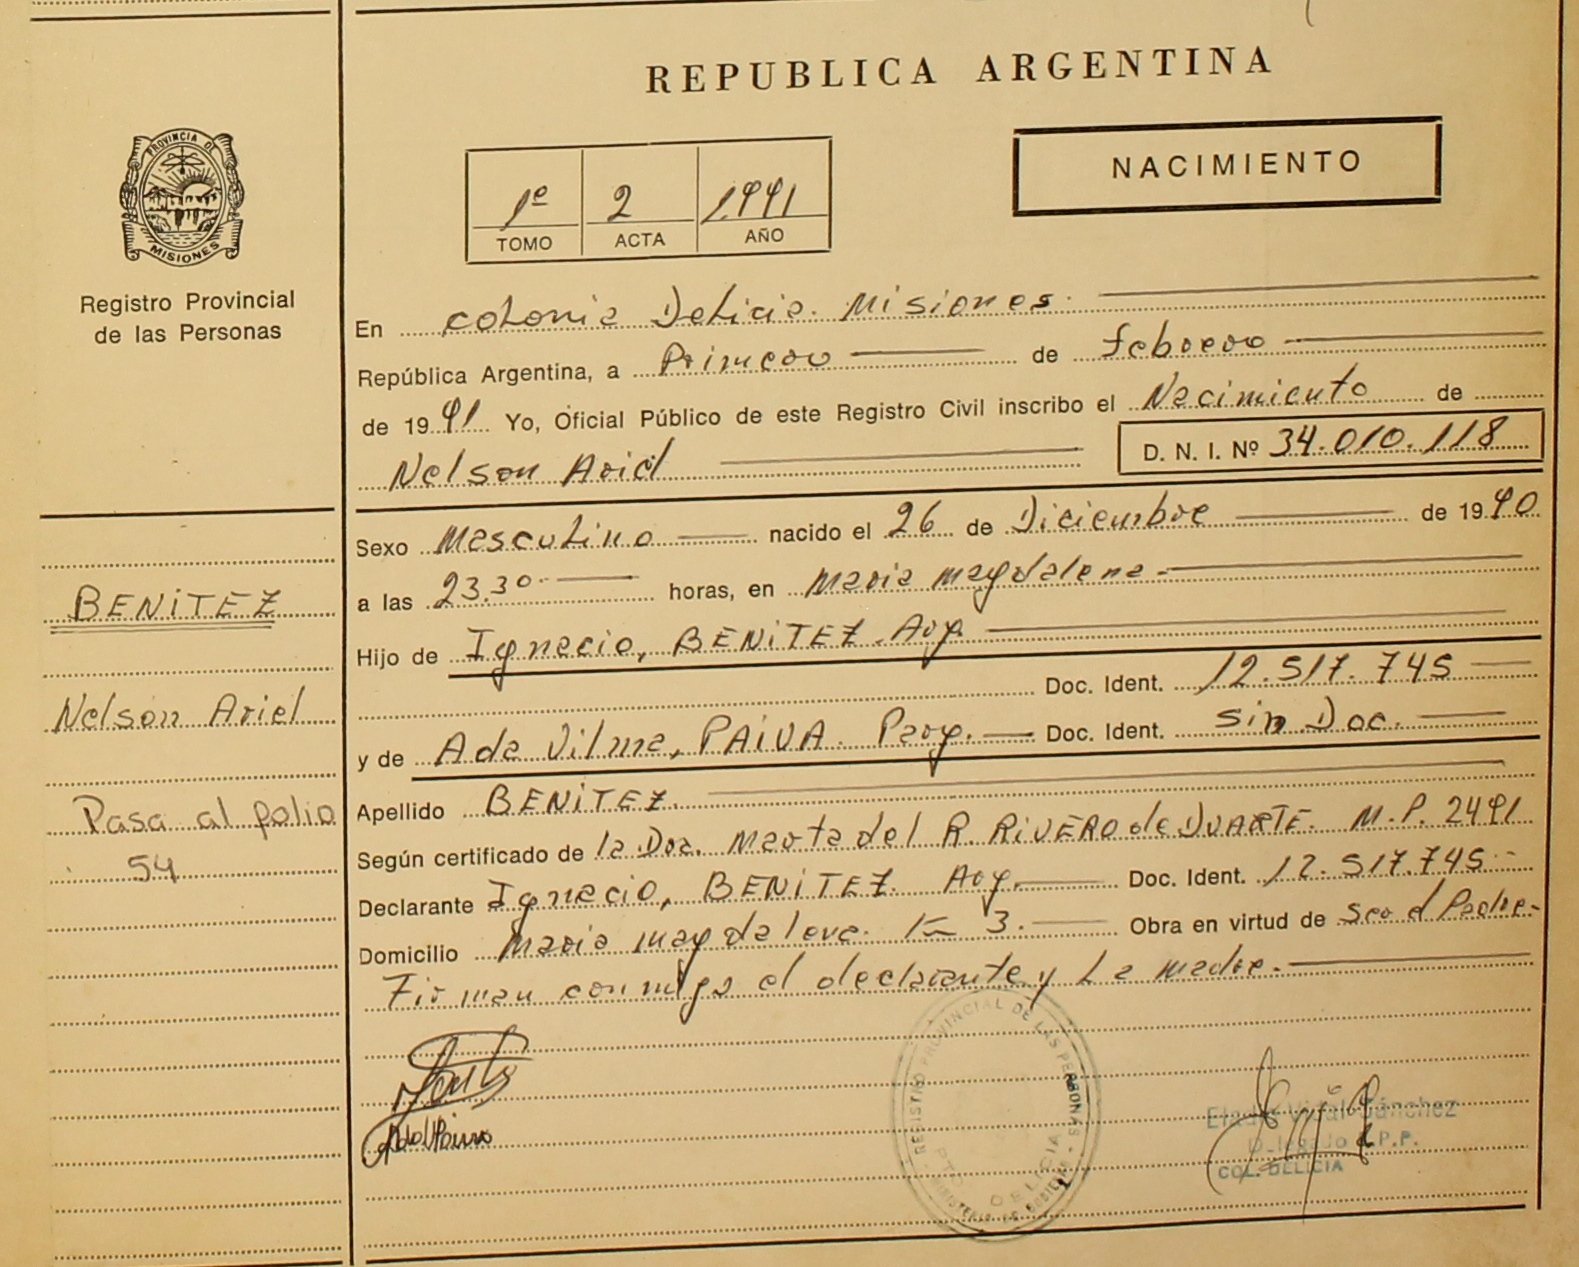 REPUBLICA ARGENTINA
PROVINCIA DE
MISIONES
Registro Provincial
de las Personas
1º 2 1.991
TOMO ACTA AÑO
NACIMIENTO
En colonia Delicia. Misiones.
República Argentina, a Primero de febrero
de 1991 Yo, Oficial Público de este Registro Civil inscribo el Nacimiento de
Nelson Ariel D. N. I. Nº 34.010.118
Sexo Masculino nacido el 26 de Diciembre de 1990
a las 23.30 horas, en Maria magdalena
Hijo de Ignacio, BENiTEZ. Arg.
Doc. Ident. 12.517.745
y de Ada Vilma, PAiVA. Parg. Doc. Ident. sin Doc.
Apellido BENiTEZ.
Según certificado de la Dra. Marta del R. RiVERO de DUARTE. M.P. 2491
Declarante Ignacio, BENiTEZ. Arg. Doc. Ident. 12.517.745
Domicilio Maria magdalena. 3. Obra en virtud de ser el Padre
Firman conmigo el declarante y La madre.
BENiTEZ
Nelson Ariel
Pasa al folio
54
REGISTRO PROVINCIAL DE LAS PERSONAS
MINISTERIO DE GOBIERNO
PTO DELICIA
Eladio Vidal Sánchez
Delegado R.P.P.
COL. DELICIA